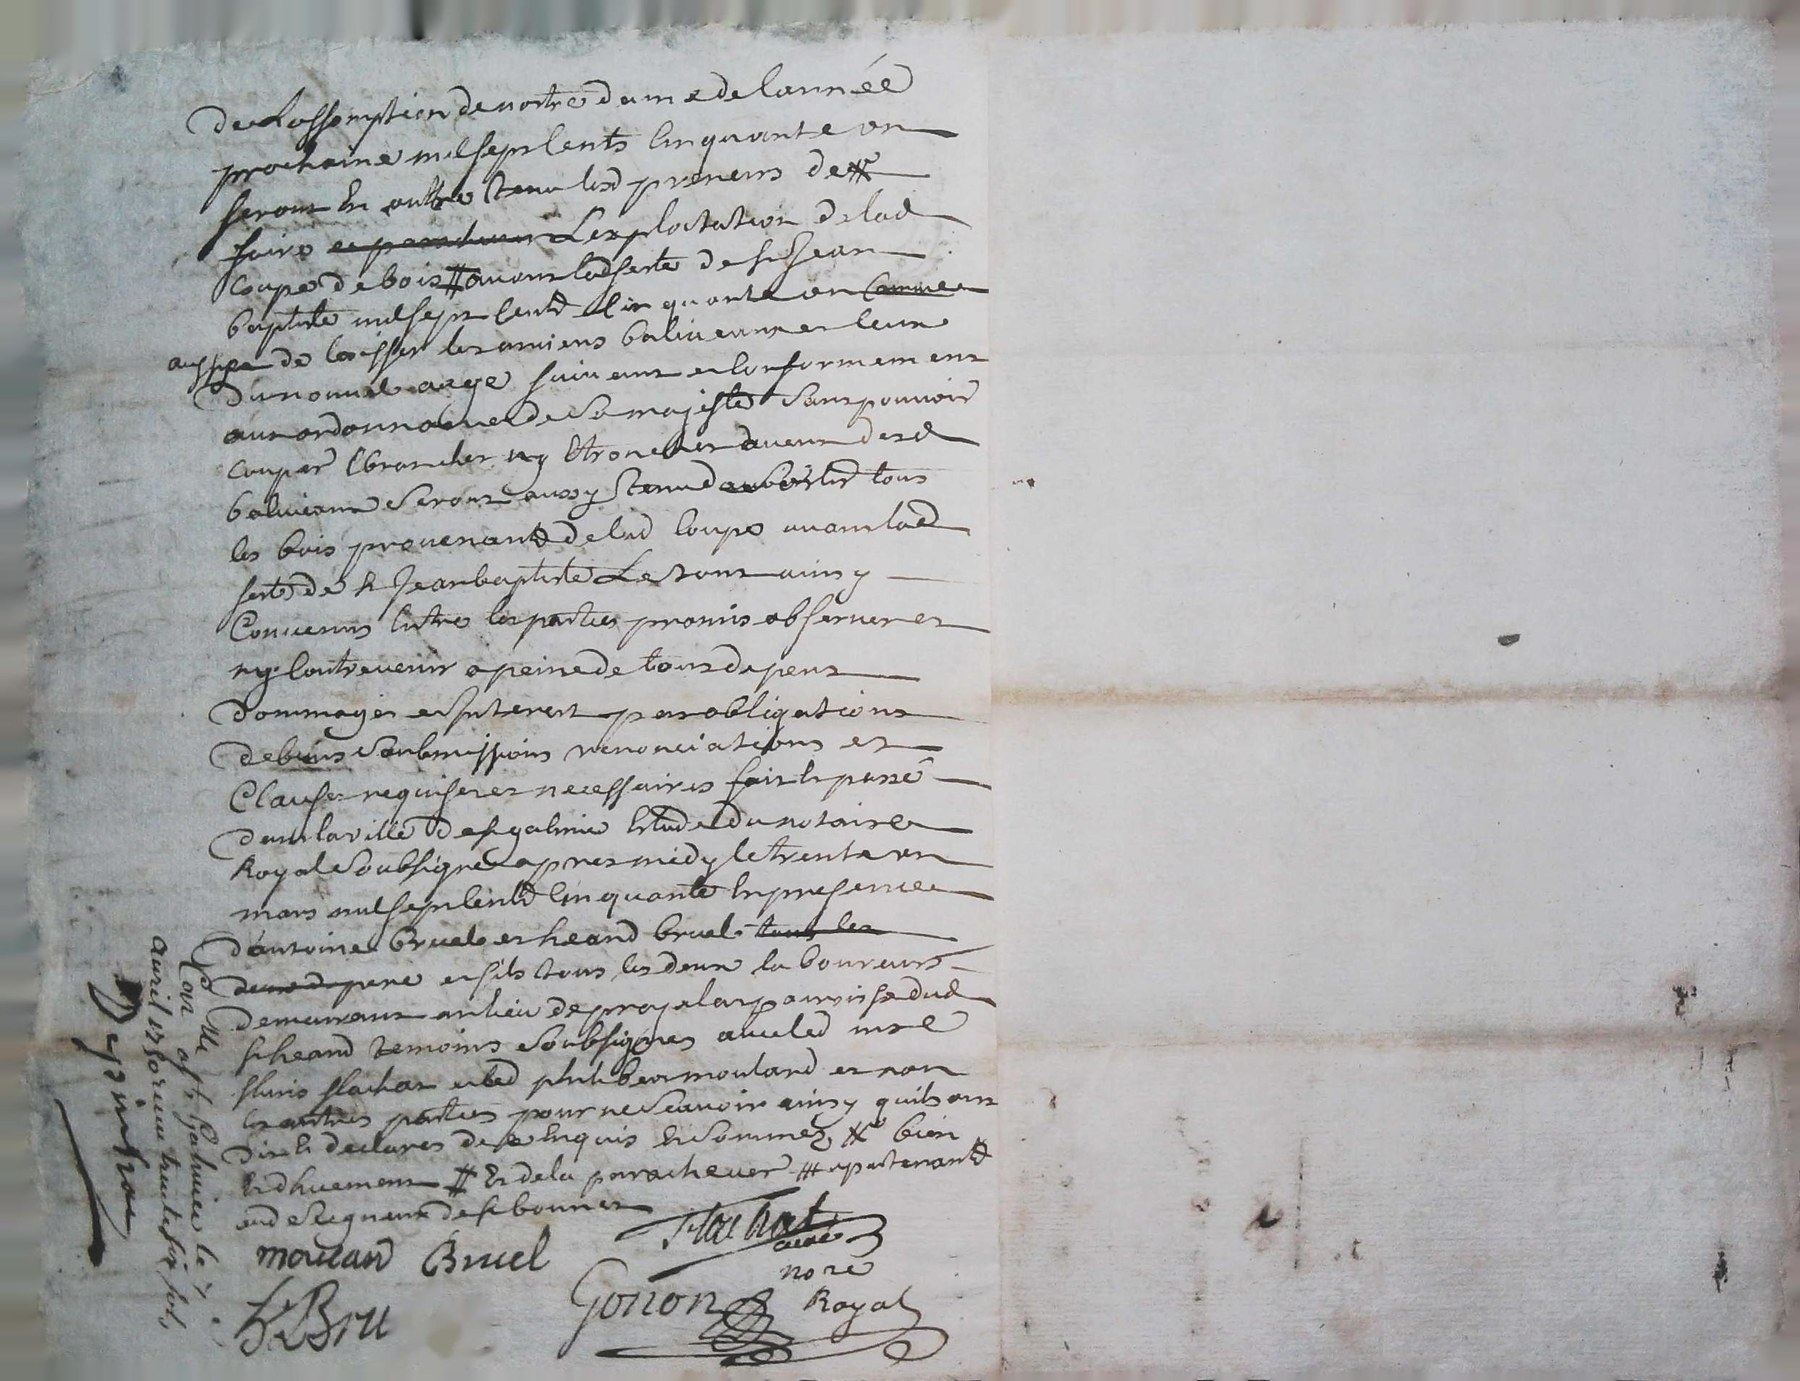 de Lassomption de nostre dame de lannée
prochaine mil sept cents cinquante un
seront en outre tenu lesd preneurs de #
faire Lexploitation de lad
coupe de bois # avant lad feste de st Jean
baptiste mil sept cents cinquante un comme
aussy de laisser les anciens baliveaux et ceux
du nouvel aage suivant et conformement
aux ordonnances de Sa majesté Sans pouvoir
couper Ebrancher ny Etroncher aucuns desd
baliveaux Seront aussy tenu tous
les bois provenants de lad coupe avant lad
feste de st Jean baptiste Le tout ainsy
Convenus Entre les parties promis observer et
ny contrevenir a peine de tous depens
dommages et Interest par obligations
de biens Soubmissions renonciations et
Clauses requises et necessaires fait et passé
dans la ville de st galmier Etude du notaire
Royal Soubsigné apres midy le trente un
mars mil sept cents cinquante En presence
d'antoine Bruel et heand bruel tous les
deux pere et fils tous les deux laboureurs
demeurant au lieu de paroisse dud
st heand temoins Soubsignes avec led mre
flachat et led philibert moulard et non
les autres parties pour ne Scavoir ainsy quils ont
dit et declares de ce Enquis et Sommez # bien
et dhuement # Et de la parachever ## apartenants
aud Seigneur de st bonnet
mouLard Bruel Flachat
curé
h Bru Gonon nore
Royal
Con lle a st Galmier le 7
avril 1750 recu trente six sols